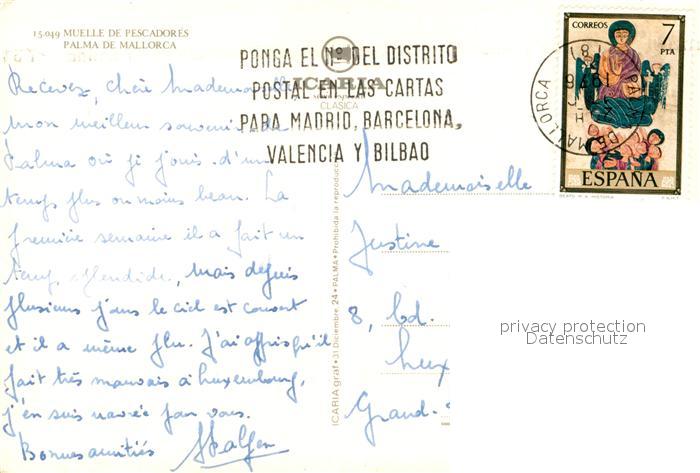 15.049 MUELLE DE PESCADORES
PALMA DE MALLORCA
PONGA EL Nº DEL DISTRITO
POSTAL EN LAS CARTAS
PARA MADRID, BARCELONA,
VALENCIA Y BILBAO
ICARIA
CLASICA
CORREOS 7
PTA
ESPAÑA
PALMA DE MALLORCA
Recevez, chère Mademoi
mon meilleur souvenir de
Palma où je jouis d'un
temps plus ou moins beau. La
première semaine il a fait un
temps splendide, mais depuis
plusieurs jours le ciel est couvert
et il a même plu. J'ai appris qu'il
fait très mauvais à Luxembourg,
j'en suis navrée pour vous.
Bonnes amitiés
Mademoiselle
Justine
8, bd.
Lux
Grand-
ICARIA graf • 31 Diciembre 24 • PALMA • Prohibida la reproducc
privacy protection
Datenschutz